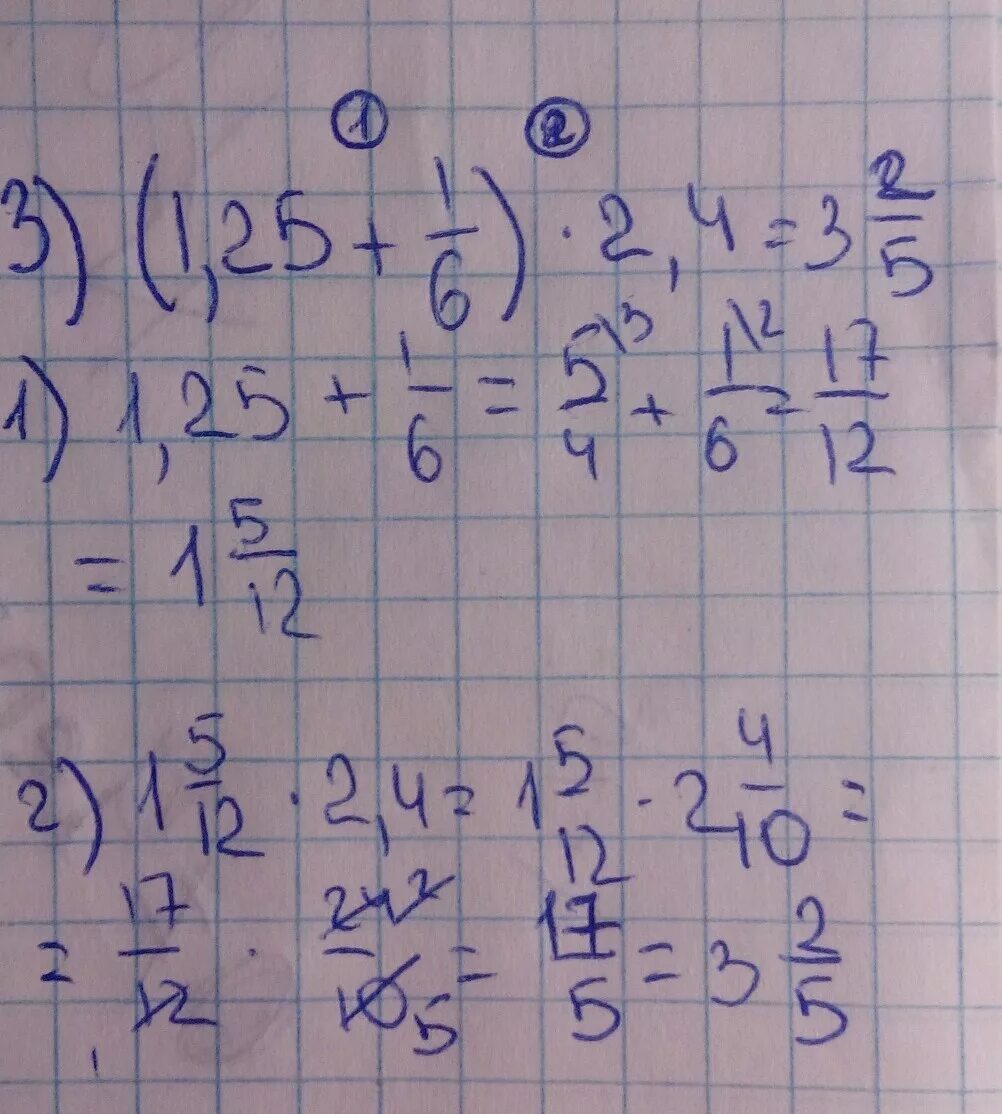 ① ②
3) (1,25 + 1/6) · 2,4 = 3 2/5
1) 1,25 + 1/6 = 5\3/4 + 1\2/6 = 17/12
= 1 5/12
2) 1 5/12 · 2,4 = 1 5/12 · 2 4/10 =
= 17/12 · 24 2/10 5 = 17/5 = 3 2/5
1